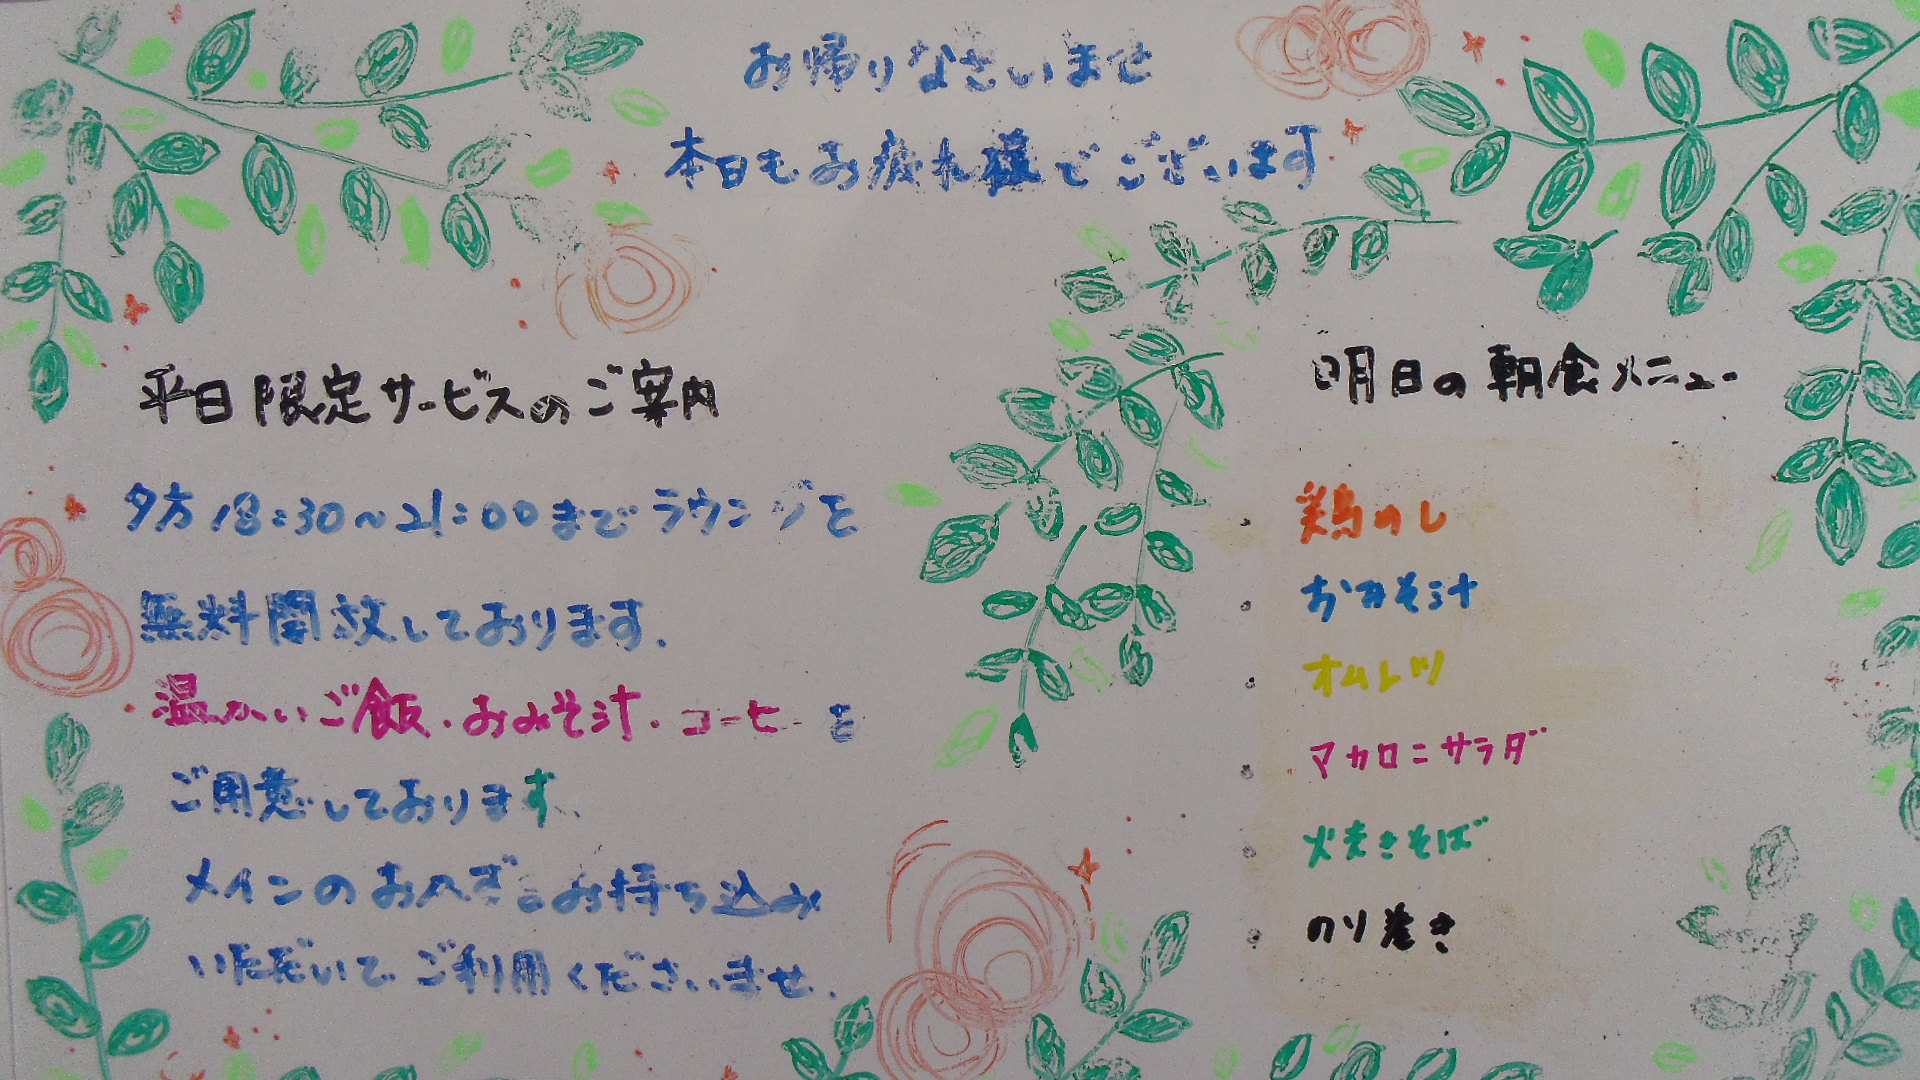 お帰りなさいませ
本日もお疲れ様でございます
平日限定サービスのご案内
夕方18:30～21:00までラウンジを
無料開放しております.
温かいご飯・おみそ汁・コーヒーを
ご用意しております、
メインのおかずはお持ち込み
いただいてご利用くださいませ.
明日の朝食メニュー
鶏めし
おみそ汁
オムレツ
マカロニサラダ
焼きそば
のり巻き